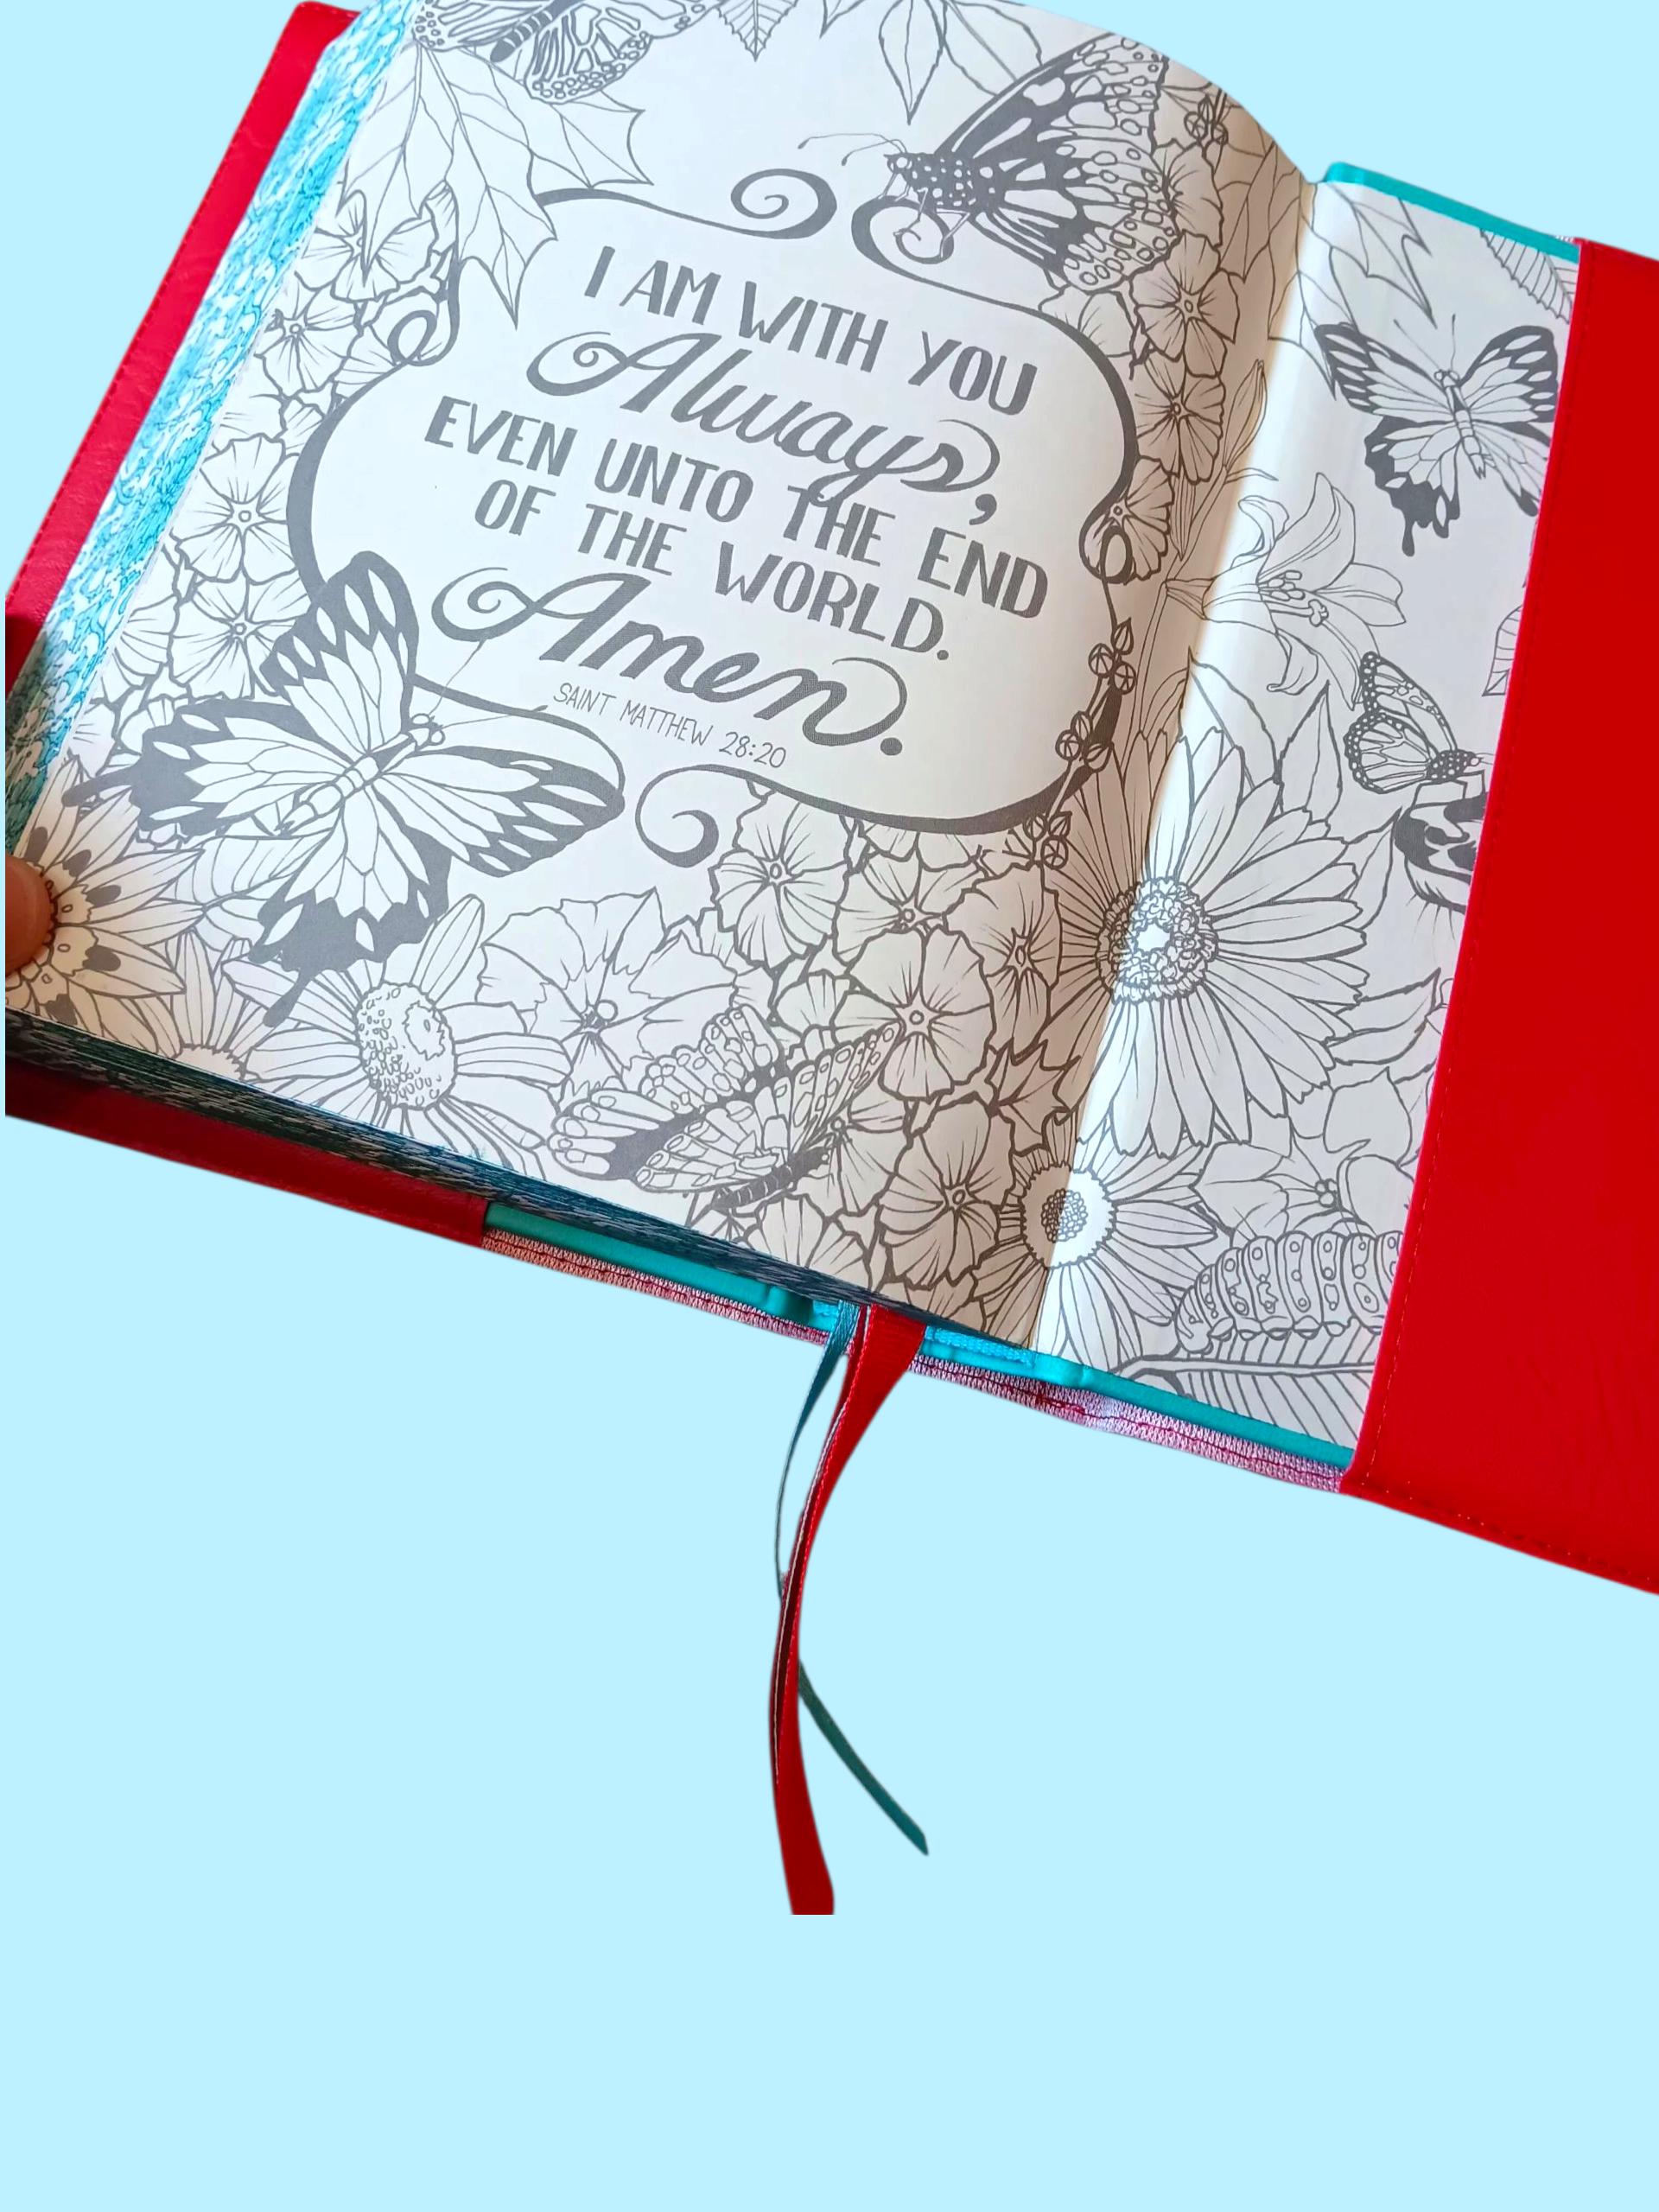 I AM WITH YOU
Always,
EVEN UNTO THE END
OF THE WORLD.
Amen.
SAINT MATTHEW 28:20